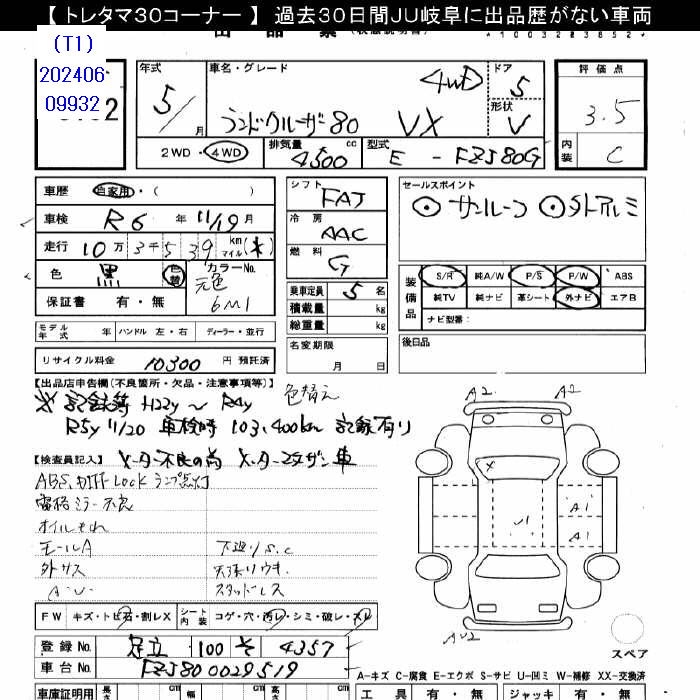 【 トレタマ30コーナー 】 過去30日間JU岐阜に出品歴がない車両
(T1)
202406
09932
年式
5 / 月
車名・グレード
ランドクルーザー80 VX
4WD
ドア
5
形状
V
評価点
3.5
内装
C
2WD・4WD
排気量
4500 cc
型式
E - FZJ80G
車歴 自家用・( )
車検 R6 年 11/19 月
走行 10 万 3 千 5 39 km マイル (*)
色 黒 色替
カラーNo.
元色
6M1
保証書 有・無
シフト
FAT
冷房
AAC
燃料
G
乗車定員 5 名
積載量 kg
総重量 kg
セールスポイント
⊙ サンルーフ ⊙ 外アルミ
装備品
S/R 純A/W P/S P/W ABS
純TV 純ナビ 革シート 外ナビ エアB
ナビ型番:
モデル年式 年 ハンドル 左・右 ディーラー・並行
名変期限
月 日
後日品
リサイクル料金 10300 円 預託済
【出品店申告欄(不良箇所・欠品・注意事項等)】
色替え
※ 記録簿 H22y ~ R4y
R5y 11/20 車検時 103,400km 記録有り
【検査員記入】 メーター不良の為 メーター改ザン車
ABS, DIFF Lock ランプ点灯
電格ミラー不良
オイルもれ
モールA 下廻り S.C
外キズ 天張リウキ
A・U スタッドレス
FW キズ・トビ石・割レX
シート内装 コゲ・穴・汚レ・シミ・破レ・スレ
登録No. 足立 100 そ 4357
車台No. FZJ800029519
A2 A2
A1
A1
A2
スペア
A-キズ C-腐食 E-エクボ S-サビ U-凹ミ W-補修 XX-交換済
車庫証明用 長さ cm cm cm
工具 有・無 ジャッキ 有・無